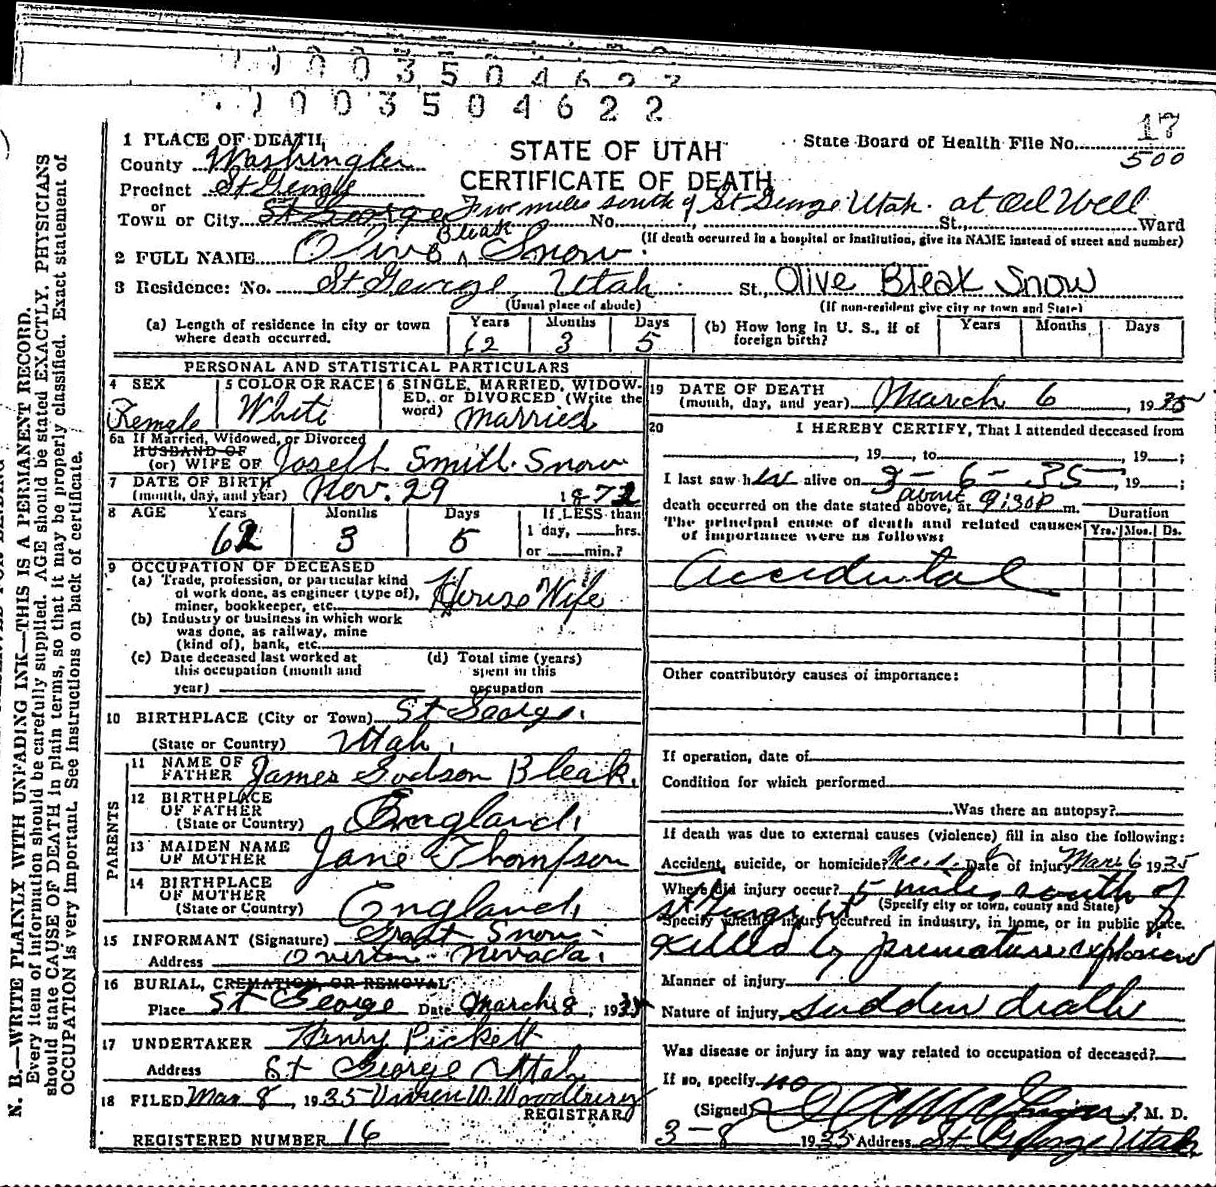 1003504622
1003504622
17
500
1 PLACE OF DEATH,
County Washington
Precinct St George
or
Town or City St George Five miles south of St George Utah. at Oil Well
No. St., Ward
(If death occurred in a hospital or institution, give its NAME instead of street and number)
STATE OF UTAH
CERTIFICATE OF DEATH
State Board of Health File No.
2 FULL NAME Olive Bleak Snow.
3 Residence: No. St George, Utah. St., Olive Bleak Snow
(Usual place of abode) (If non-resident give city or town and State)
(a) Length of residence in city or town where death occurred. Years 62 Months 3 Days 5
(b) How long in U. S., if of foreign birth? Years Months Days
PERSONAL AND STATISTICAL PARTICULARS
4 SEX Female
5 COLOR OR RACE White
6 SINGLE, MARRIED, WIDOW-
ED, or DIVORCED (Write the
word) Married
6a If Married, Widowed, or Divorced
HUSBAND OF
(or) WIFE OF Joseph Smith Snow
7 DATE OF BIRTH
(month, day, and year) Nov. 29 1872
8 AGE Years 62 Months 3 Days 5 If LESS than
1 day, hrs.
or min.?
9 OCCUPATION OF DECEASED
(a) Trade, profession, or particular kind
of work done, as engineer (type of),
miner, bookkeeper, etc. House Wife
(b) Industry or business in which work
was done, as railway, mine
(kind of), bank, etc.
(c) Date deceased last worked at
this occupation (month and
year)
(d) Total time (years)
spent in this
occupation
10 BIRTHPLACE (City or Town) St George.
(State or Country) Utah.
PARENTS
11 NAME OF
FATHER James Godson Bleak.
12 BIRTHPLACE
OF FATHER
(State or Country) England.
13 MAIDEN NAME
OF MOTHER Jane Thompson
14 BIRTHPLACE
OF MOTHER
(State or Country) England.
15 INFORMANT (Signature) Grant Snow
Address Overton Nevada.
16 BURIAL, CREMATION, OR REMOVAL
Place St George Date March 8, 1935
17 UNDERTAKER Henry Pickett
Address St George Utah
18 FILED Mar 8, 1935 Woodbury
REGISTRAR
REGISTERED NUMBER 16
19 DATE OF DEATH
(month, day, and year) March 6, 1935
20 I HEREBY CERTIFY, That I attended deceased from
, 19 , to , 19 ;
I last saw her alive on 3-6-35, 19 ;
death occurred on the date stated above, at about 9:30P m.
The principal cause of death and related causes
of importance were as follows:
Duration
Yrs. Mos. Ds.
Accidental
Other contributory causes of importance:
If operation, date of
Condition for which performed
Was there an autopsy?
If death was due to external causes (violence) fill in also the following:
Accident, suicide, or homicide? Date of injury Mar 6 1935
Where did injury occur? 5 miles south of
(Specify city or town, county and State)
St George Ut
Specify whether injury occurred in industry, in home, or in public place.
Killed by premature explosion
Manner of injury
Nature of injury sudden death
Was disease or injury in any way related to occupation of deceased?
If so, specify no
(Signed) M. D.
3-8 1935 Address St George Utah
N. B.—WRITE PLAINLY WITH UNFADING INK—THIS IS A PERMANENT RECORD.
Every item of information should be carefully supplied. AGE should be stated EXACTLY. PHYSICIANS
should state CAUSE OF DEATH in plain terms, so that it may be properly classified. Exact statement of
OCCUPATION is very important. See instructions on back of certificate.